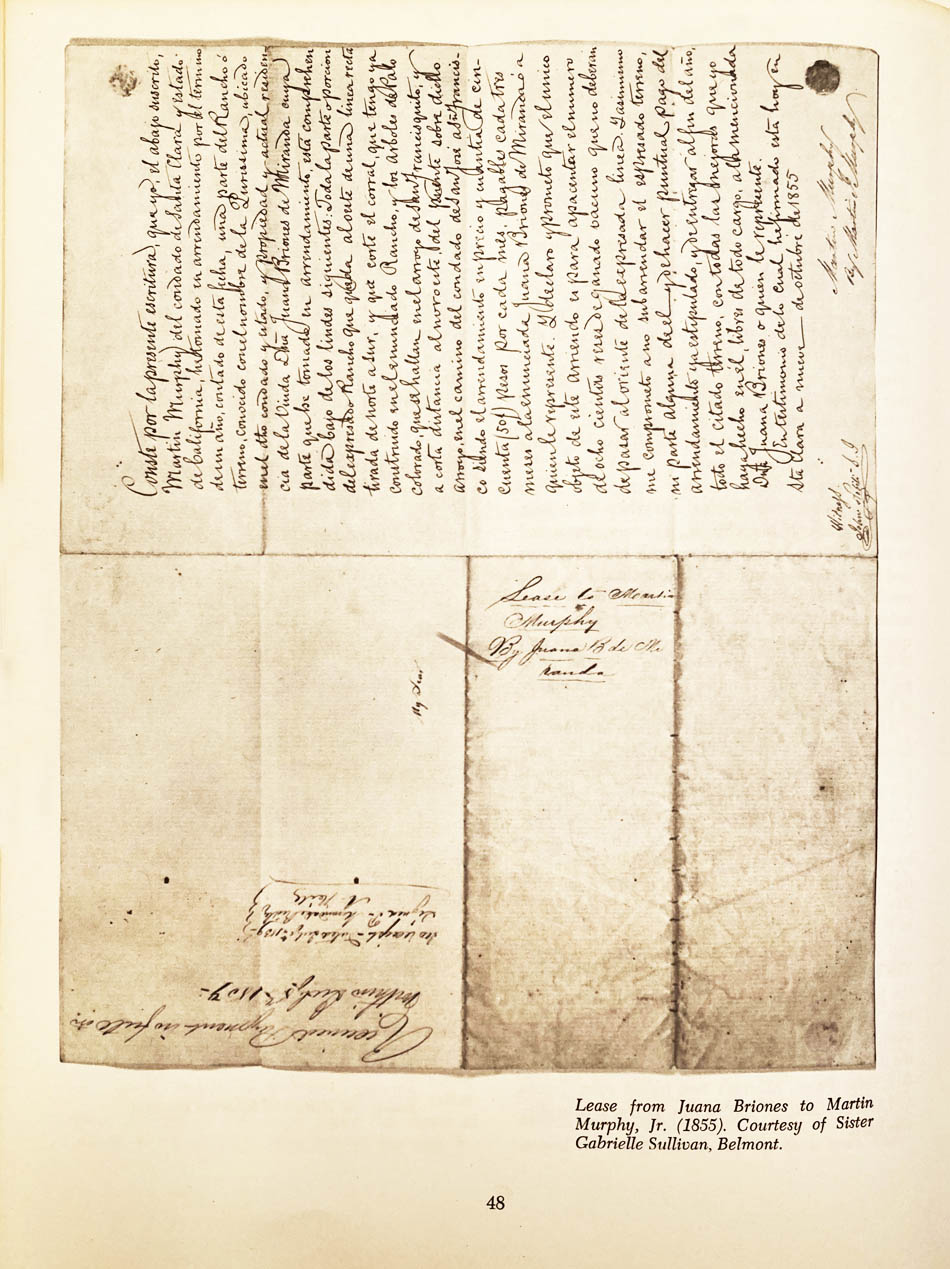 Conste por la presente escritura, que yo, el abajo suscrito,
Martin Murphy, del condado de Santa Clara y estado
de California, he tomado en arrendamiento por el término
de un año, contado de esta fecha, una parte del Rancho ó
terreno, conocido con el nombre de la Purissima, ubicado
en el dho condado y estado, y propiedad y actual residen
cia de la Viuda Dña Juana Briones de Miranda cuya
parte que he tomado en arrendamiento, está comprehen
dida bajo de los lindes siguientes: Toda la parte o porcion
del expresado Rancho que queda al oeste de una linea recta
tirada de norte a sur, y que corte el corral, que tengo ya
construido en el enunciado Rancho, y los árboles de Palo
colorado, que se hallan en el arroyo de San Francisquito, y
a corta distancia al noroeste, del puente sobre dicho
arroyo, en el camino del condado de San José a Sn Francis-
co siendo el arrendamiento en precio y cuantia de cin-
cuenta (50$) pesos por cada mes, pagables cada tres
meses a la enunciada Juana Briones de Miranda ó a
quien le represente. Y declaro y prometo que el unico
objeto de este arriendo es para apacentar el numero
de ocho cientas reses de ganado vacuno que no deberan
de pasar al oriente de la expresada linea. Y asimismo
me comprometo a no subarrendar el expresado terreno,
ni parte alguna del, y de hacer puntual pago del
arrendamiento ya estipulado, y de entregar al fin del año,
todo el citado terreno, con todas las mejoras que yo
haya hecho en él, libres de todo cargo, a la mencionada
Dña Juana Briones o quien le represente.
In testimonio de lo cual he firmado esta hoy en
Sta Clara a nueve de octubre de 1855
Martin Murphy
By Martin J. Murphy
Witness
John
S.J
Lease to Martin
Murphy
By Juana B de Mi
randa
Received Payment in full
July 5th 1859
Lease from Juana Briones to Martin
Murphy, Jr. (1855). Courtesy of Sister
Gabrielle Sullivan, Belmont.
48